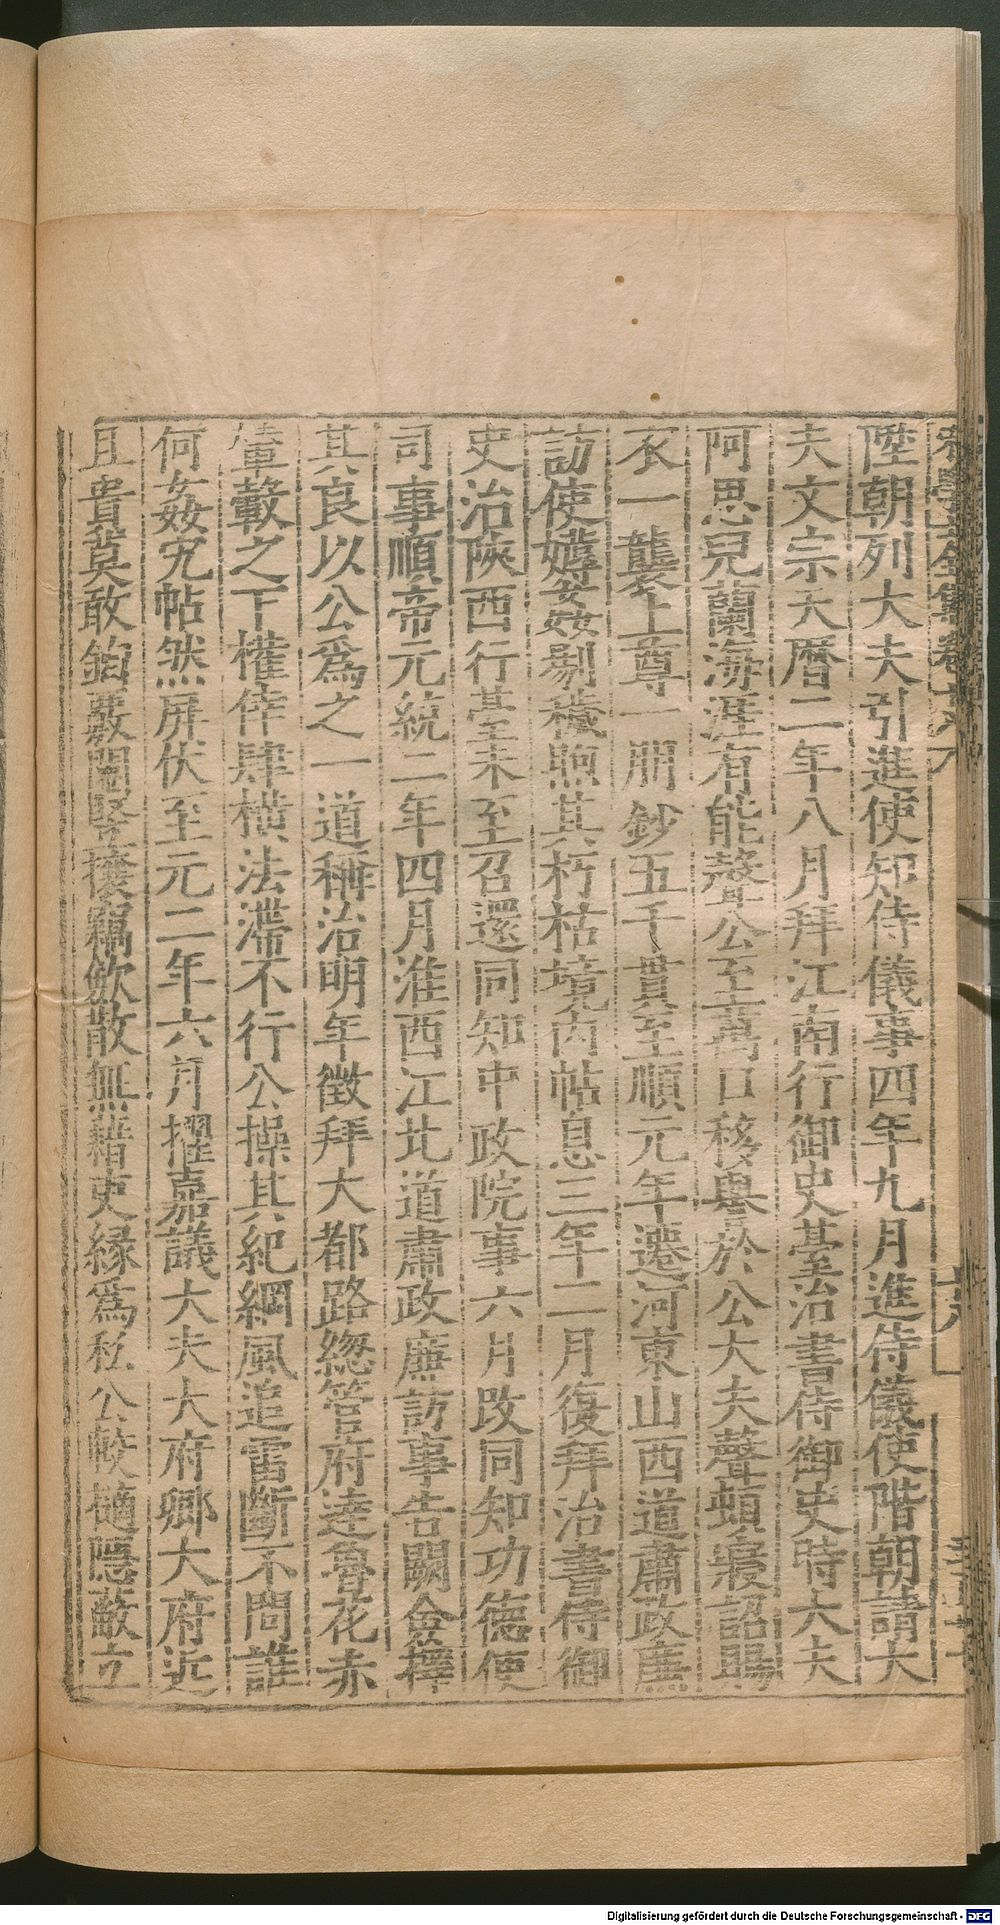 陞朝列大夫引進使知侍儀事四年九月進侍儀使階朝請大
夫文宗天曆二年八月拜江南行御史臺治書侍御史時大夫
阿思兒蘭海涯有能聲公至萬口移譽於公大夫聲頓寢詔賜
衣一襲上尊一朋鈔五千貫至順元年遷河東山西道肅政廉
訪使嬉妥姦剔穢煦其朽枯境內帖息三年二月復拜治書侍御
史治陝西行臺未至召還同知中政院事六月改同知功德使
司事順帝元統二年四月淮西江北道肅政廉訪事告闕僉擇
其良以公爲之一道稱治明年徵拜大都路緫管府達魯花赤
輦轂之下權倖肆橫法滯不行公操其紀綱風追雷斷不問誰
何姦宄帖然屏伏至元二年六月擢嘉議大夫大府卿大府近
且貴莫敢鉤覈閹豎攘竊歛散無藉吏緣爲私公較擿隱蔽立
Digitalisierung gefördert durch die Deutsche Forschungsgemeinschaft - DFG